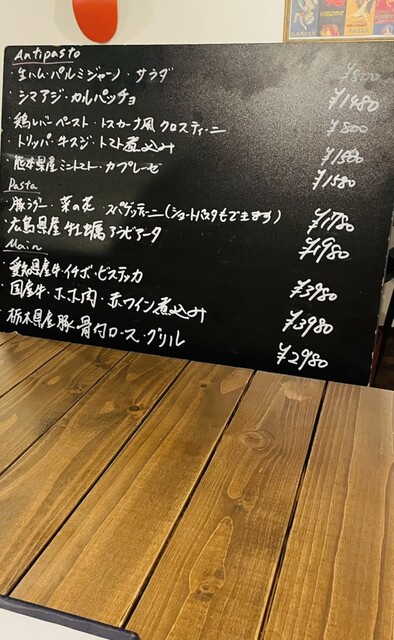 Antipasto
・生ハム・パルミジャーノ・サラダ ¥800
・シマアジ・カルパッチョ ¥1480
・鶏レバーペースト・トスカーナ風クロスティーニ ¥800
・トリッパ・牛スジ・トマト煮込み ¥1580
・熊本県産ミニトマト・カプレーゼ ¥1580
Pasta
・豚ラグー・菜の花・スパゲッティーニ(ショートパスタもできます) ¥1780
・広島県産牡蠣アラビアータ ¥1980
Main
・愛知県産牛イチボ・ビステッカ ¥3980
・国産牛・ホホ肉・赤ワイン煮込み ¥3980
・栃木県産豚骨付ロース・グリル ¥2980